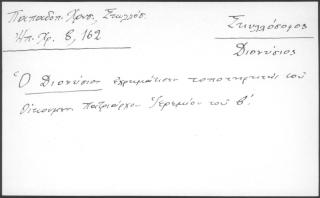 Παπαδοπ. Χρυσ, Σκυλλόσ.
Ἠπ. Χρ. 8, 162
Σκυλλόσοφος
Διονύσιος
Ὁ Διονύσιος ἐχρημάτισεν τοποτηρητὴς τοῦ
Οἰκουμεν. Πατριάρχου Ἱερεμίου τοῦ Β'.